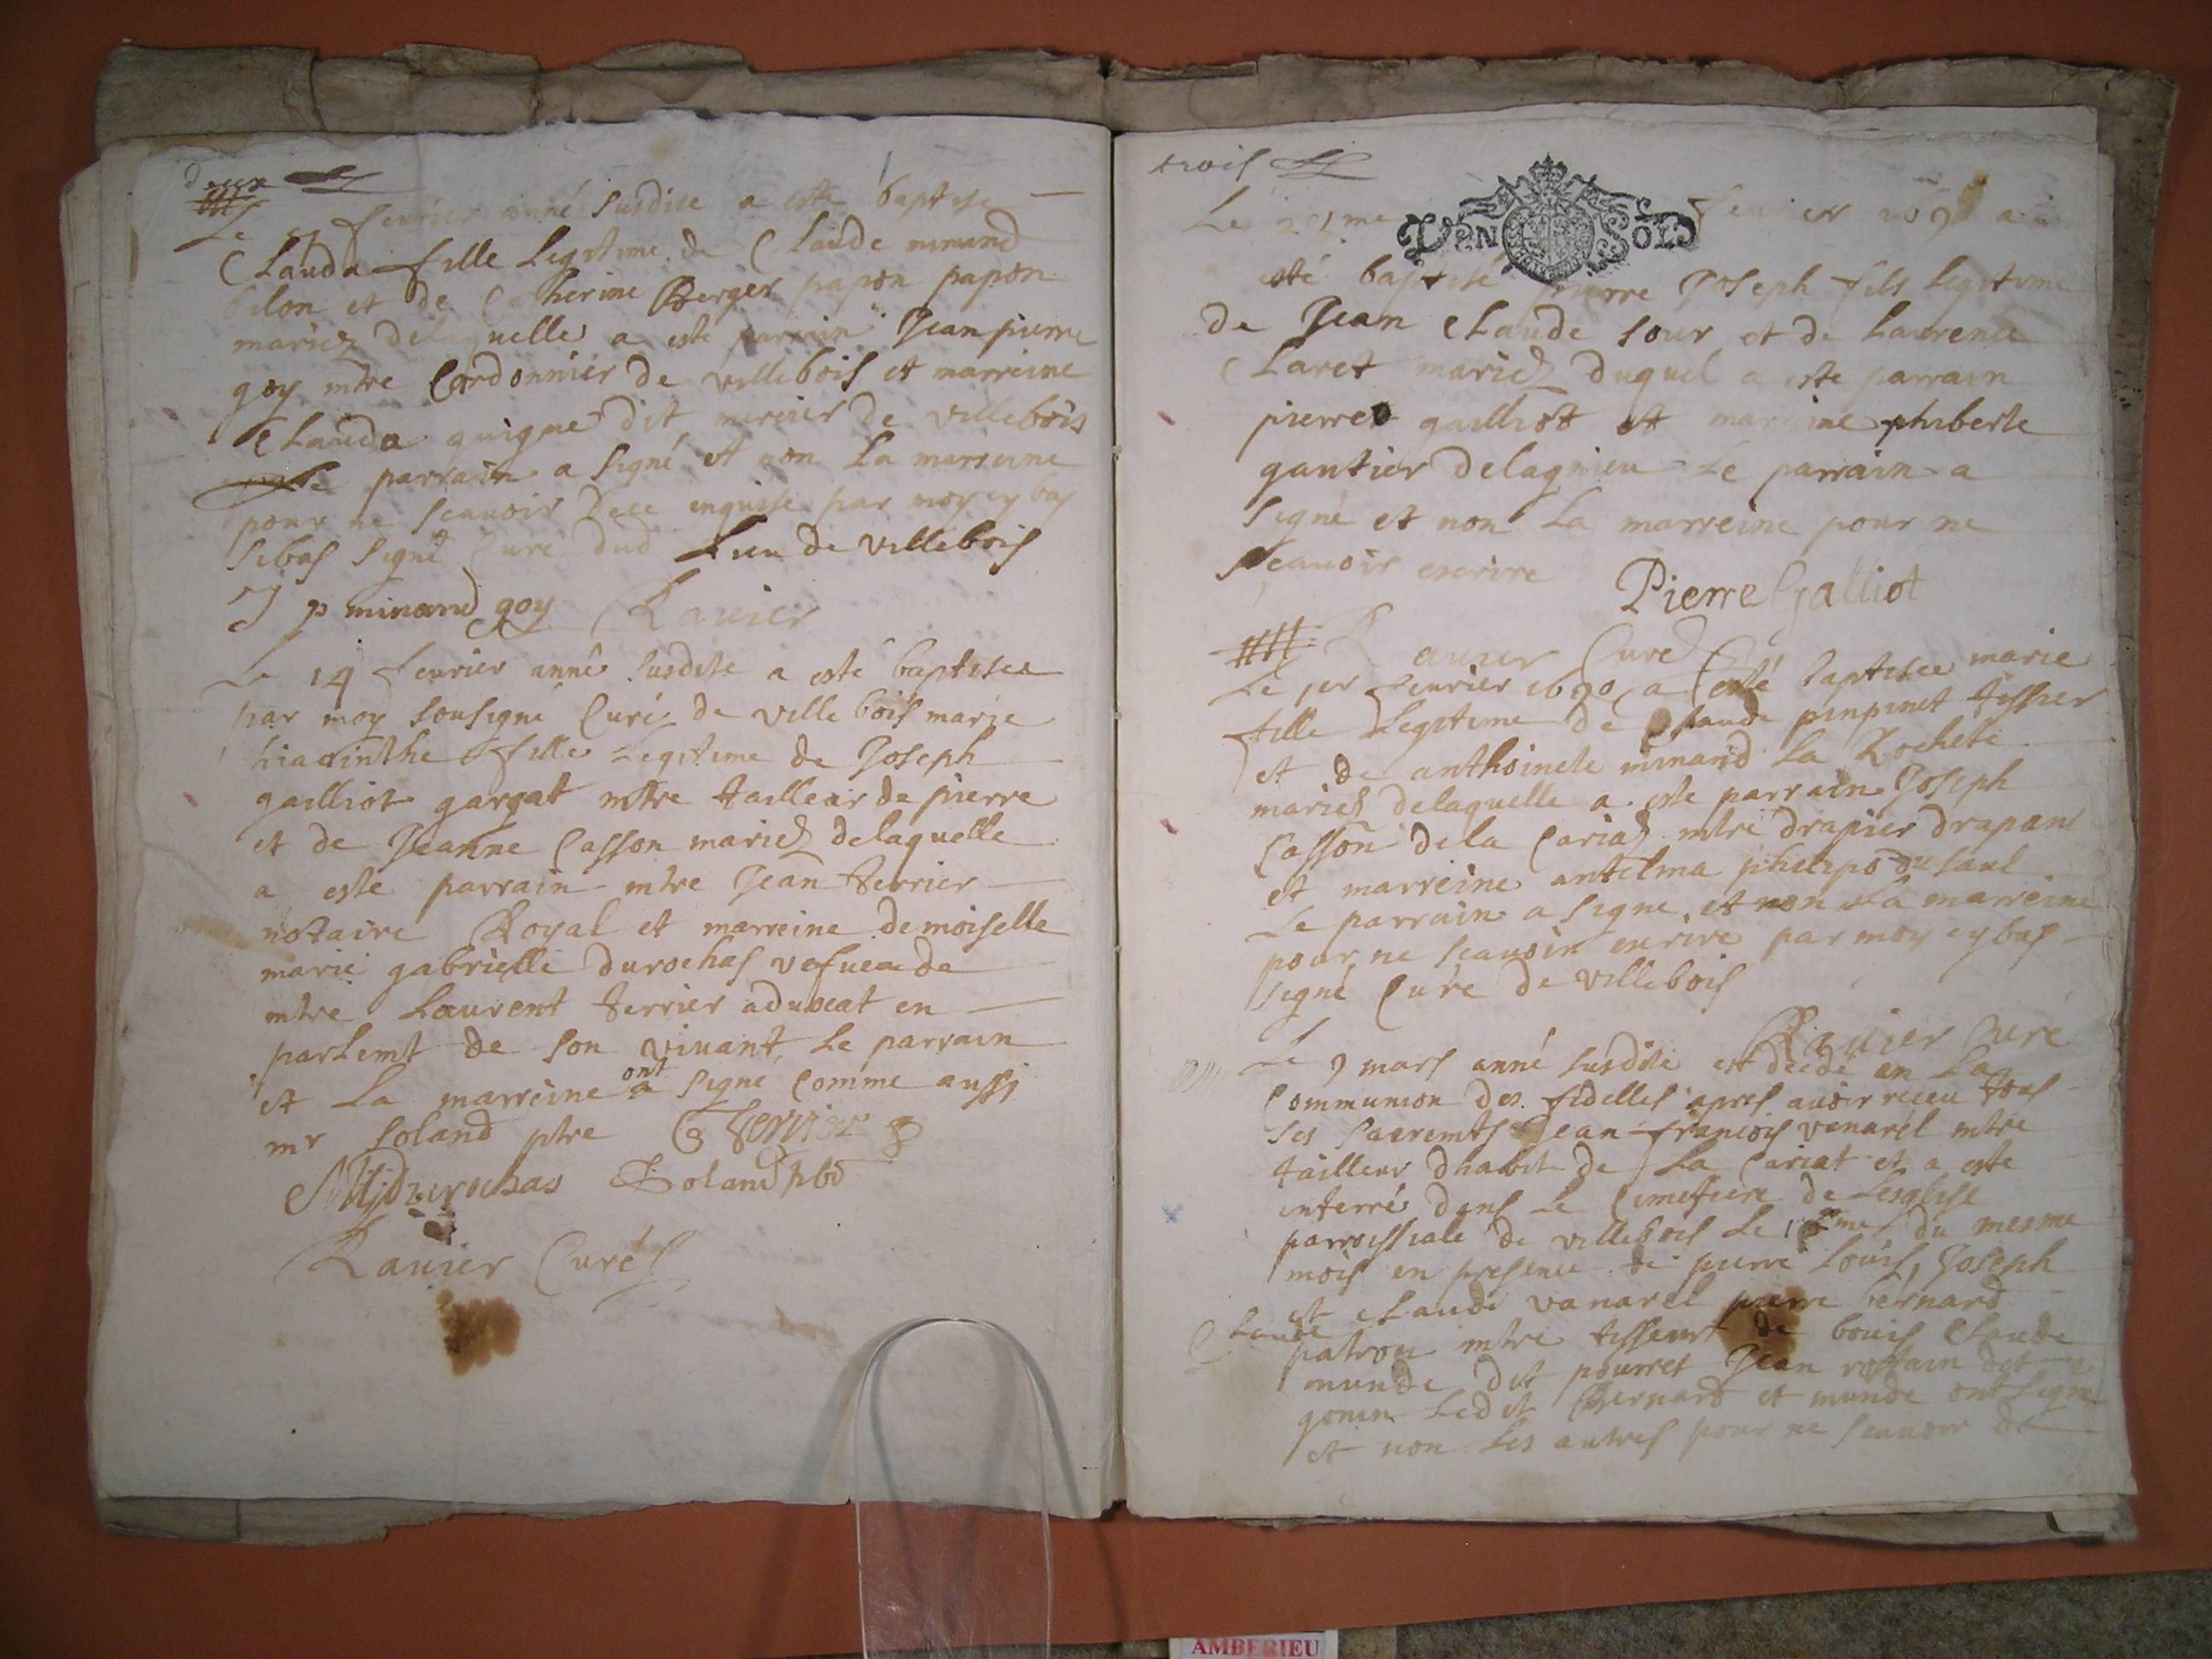 deux
Le fevrier anné susdite a este baptise
Clauda fille legitime de Claude minand
bilon et de Catherine Berger papon papon
mariez delaquelle a este parrain Jean pierre
goy mtre Cordonnier de villebois et marreine
Clauda guigue dit mercier de villebois
le parrain a signé et non la marreine
pour ne scauoir dece enquise par moy cy bas
sebas signé Curé dud Lieu de villebois
J p minand goy Rauier
Le 14 feurier anné susdite a esté baptisee
par moy sousigné Curé de ville bois marie
hiacinthe fille legitime de Joseph
gailliot gargat mtre tailleur de pierre
et de Jeanne Casson mariez delaquelle
a este parrain mtre Jean terrier
notaire Royal et marreine demoiselle
marie gabrielle durochas vefue de
mtre Laurent terrier aduocat en
parlemt de son viuant, le parrain
et La marreine ont signé Comme aussi
mr Soland ptre Terrier
Durochas Soland pbr
Rauier Curé
trois
Le me feurier a
VN SOL
esté baptisé pierre Joseph fils legitime
de Jean Claude sour et de Laurence
Claret mariez duquel a este parrain
pierre gailliot et marreine phiberte
gautier delagnieu Le parrain a
signé et non la marreine pour ne
scauoir escrire Pierre Galliot
Rauier Curé
Le 1er feurier 1690 a esté baptisee marie
fille Legitime de Claude pinpinet tissier
et de anthoinete minand La Rochete
mariez delaquelle a este parrain Joseph
Casson dela Cariaz mtre drapier drapant
et marreine antelma du saul
Le parrain a signé et non la marreine
pour ne scauoir escrire par moy cy bas
signé Curé de villebois
Rauier Curé
Le 9 mars anné susdite est decedé en La
Communion des fidelles apres auoir receu tous
ses sacremts Jean francois vanarel mtre
tailleur dhabit de La Cariat et a este
enterré dans le Cimetiere de Lesglise
parroissiale de villebois le me du mesme
mois en presence de pierre Louis, Joseph
et Claude vanarel pierre bernard
Claude patron mtre tisseur de bouis Claude
munde dit pourret Jean rostain dit
gonin Ledit Bernard et munde ont signé
et non les autres pour ne scauoir de
AMBERIEU